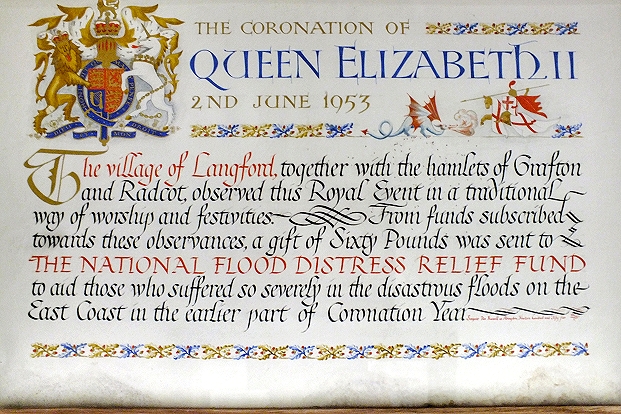 THE CORONATION OF
QUEEN ELIZABETH II
2ND JUNE 1953
The village of Langford, together with the hamlets of Grafton
and Radcot, observed this Royal Event in a traditional
way of worship and festivities From funds subscribed
towards these observances, a gift of Sixty Pounds was sent to
THE NATIONAL FLOOD DISTRESS RELIEF FUND
to aid those who suffered so severely in the disastrous floods on the
East Coast in the earlier part of Coronation Year.